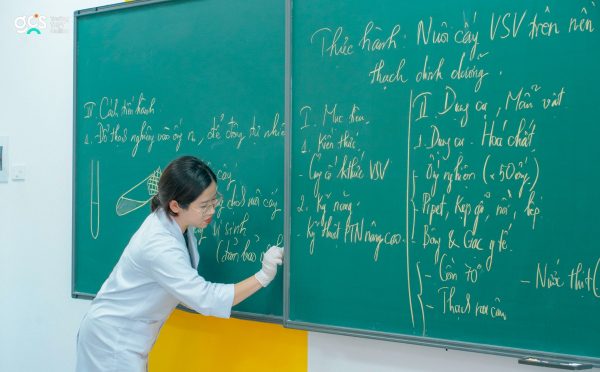 gcs
Thực hành: Nuôi cấy VSV trên nền
thạch dinh dưỡng.
I. Mục tiêu
1. Kiến thức
- Củng cố kthức VSV
2. Kỹ năng
- Kỹ thuật PTN nâng cao.
II. Dụng cụ, Mẫu vật
1. Dụng cụ. Hoá chất
- Ống nghiệm (x50 ống)
- Pipet, kẹp gỗ, nồi, bếp
- Bông & Gạc y tế.
- Cồn 70°
- Thạch rau câu
- Nước thịt (
III. Cách tiến hành
1. Đổ thạch nghiêng vào ống no, để đông tự nhiên
cấy
nuôi cấy
vô sinh
(đảm bảo